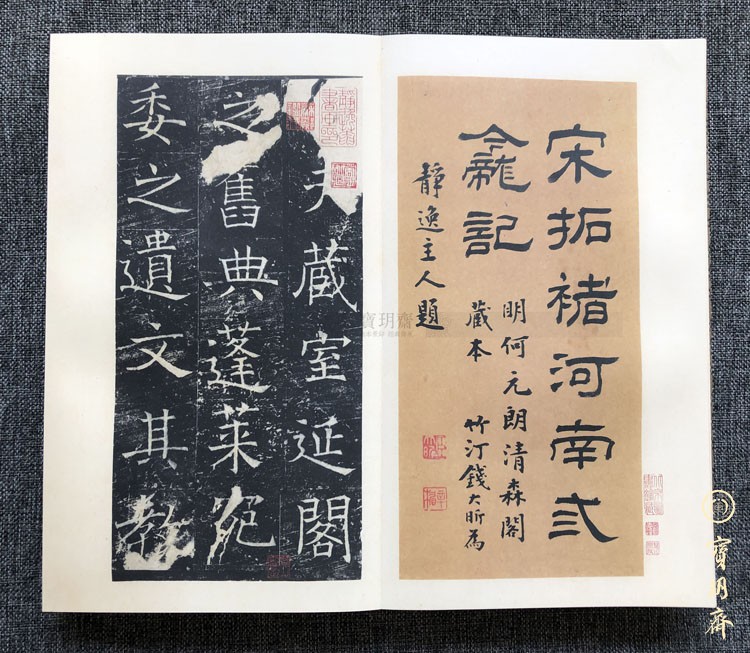 宋拓褚河南弎
龕記
明何元朗清森閣
藏本 竹汀錢大昕為
靜逸主人題
夫藏室延閣
之舊典蓬萊宛
委之遺文其教
寶玥齋
寶玥齋